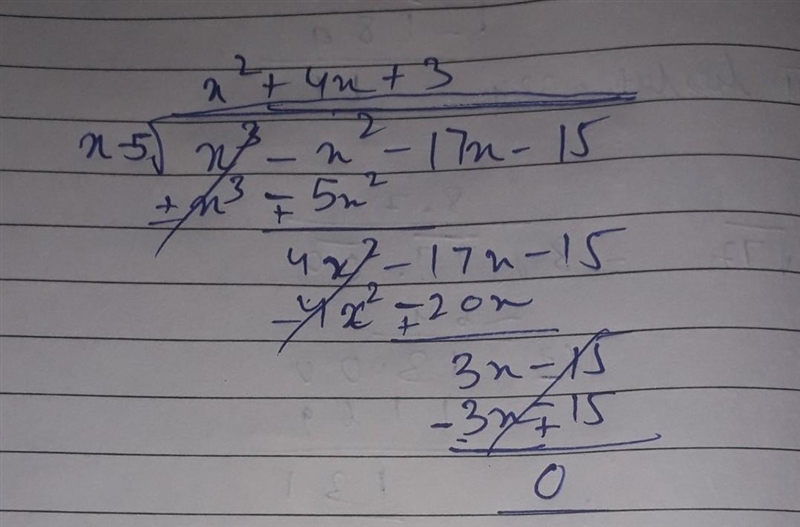 x² + 4x + 3
x-5) x³ - x² - 17x - 15
± x³ ∓ 5x²
4x² - 17x - 15
- 4x² ∓ 20x
3x - 15
- 3x ∓ 15
0